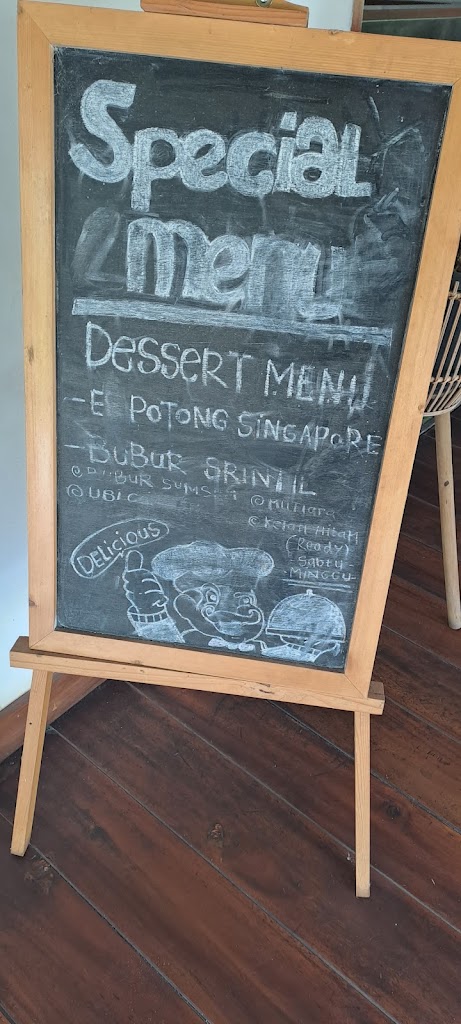 Special
menu
DESSERT MENU
- E POTONG SINGAPORE
- BUBUR SRINTIL
@ BUBUR SUMSUM @ Mutiara
@ UBI @ Ketan Hitam
(Ready)
Sabtu
MINGGU
DELicious